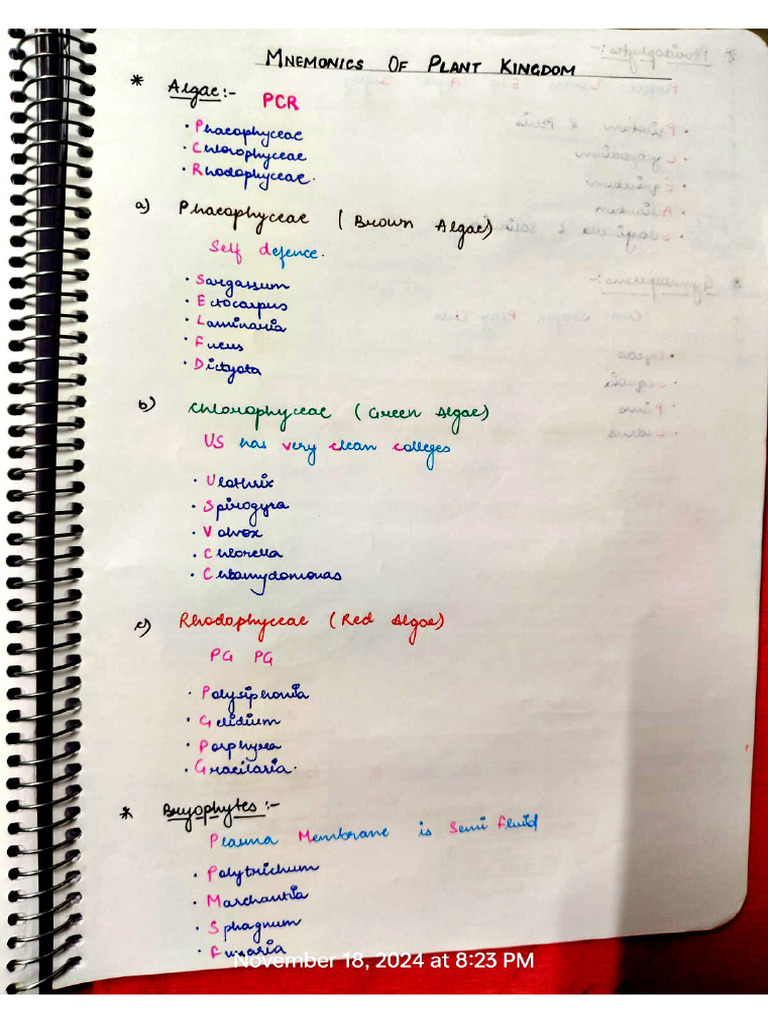 MNEMONICS OF PLANT KINGDOM
* Algae:- PCR
• Phaeophyceae
• Chlorophyceae
• Rhodophyceae.
a) Phaeophyceae (Brown Algae)
Self defence.
• Sargassum
• Ectocarpus
• Laminaria
• Fucus
• Dictyota
b) Chlorophyceae (Green Algae)
US has very clean colleges
• Ulothrix
• Spirogyra
• Volvox
• Chlorella
• Chlamydomonas
c) Rhodophyceae (Red Algae)
PG PG
• Polysiphonia
• Gelidium
• Porphyra
• Gracilaria.
* Bryophytes:-
Plasma Membrane is Semi Fluid
• Polytrichum
• Marchantia
• Sphagnum
• Funaria
November 18, 2024 at 8:23 PM